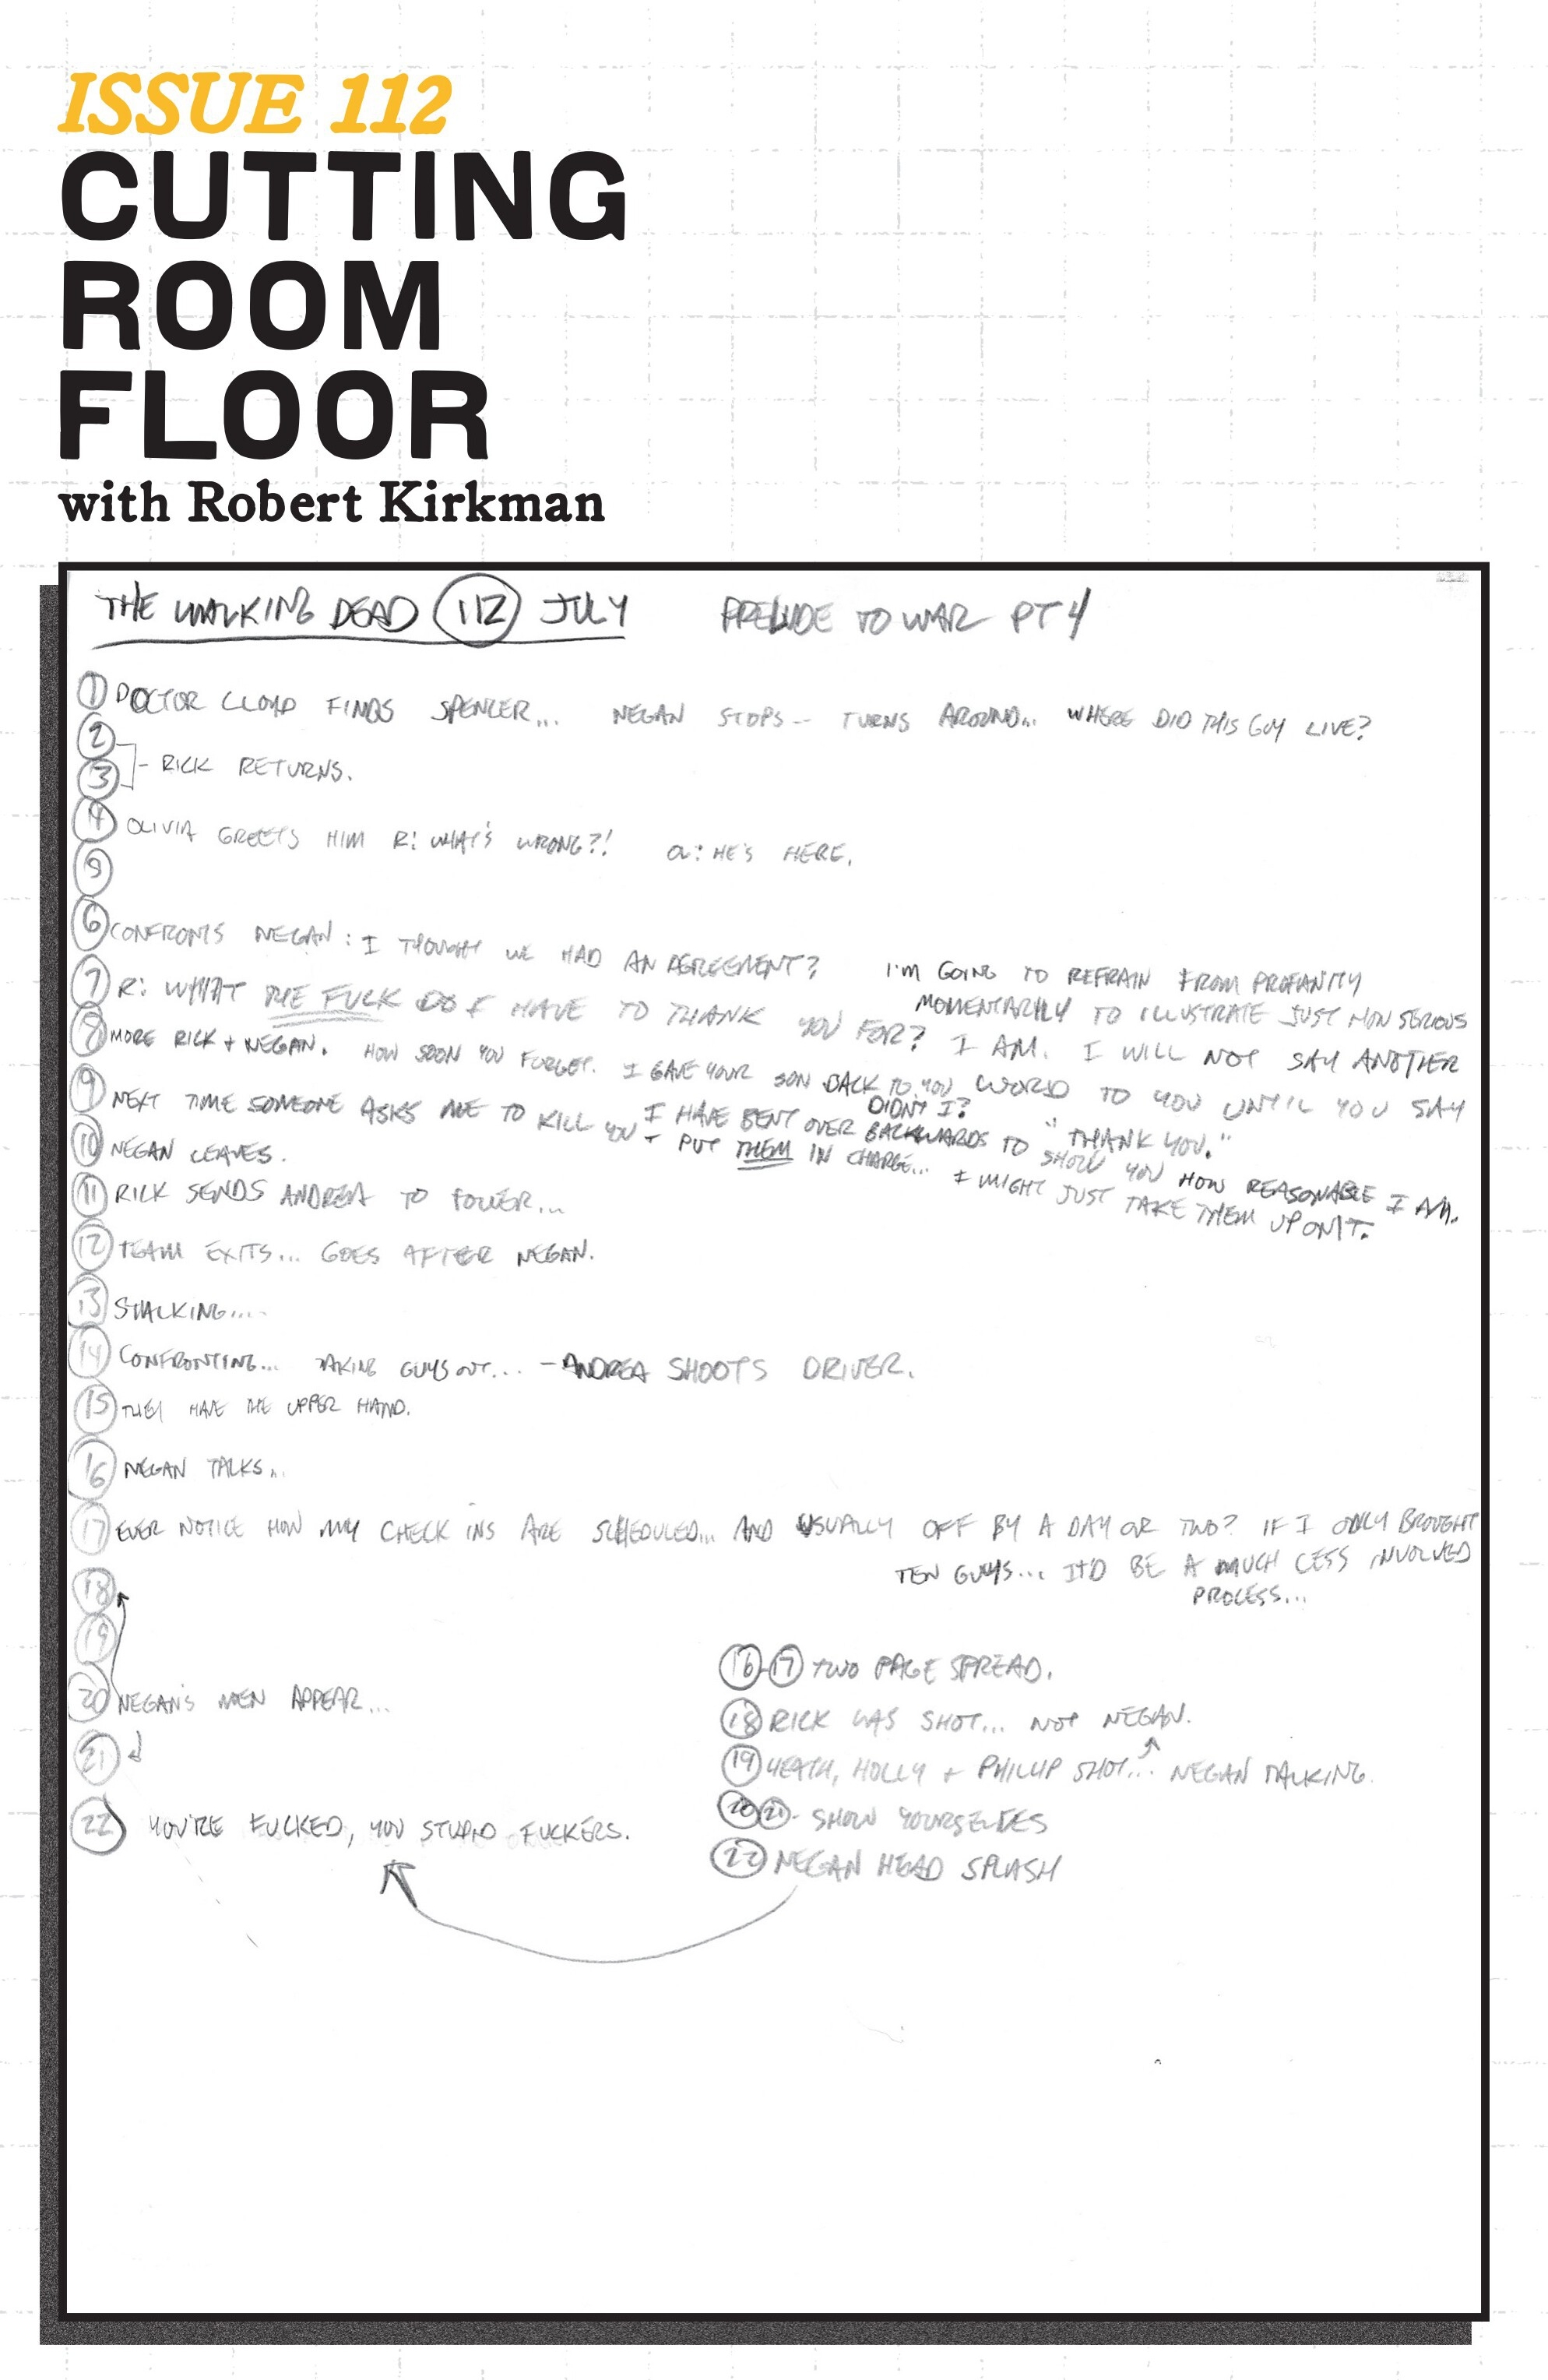 ISSUE 112
CUTTING
ROOM
FLOOR
with Robert Kirkman
THE WALKING DEAD 112 JULY PRELUDE TO WAR PT 4
1 DOCTOR CLOYD FINDS SPENCER... NEGAN STOPS-- TURNS AROUND... WHERE DID THIS GUY LIVE?
2
3 - RICK RETURNS.
4 OLIVIA GREETS HIM R: WHAT'S WRONG?! OL: HE'S HERE.
5
6 CONFRONTS NEGAN: I THOUGHT WE HAD AN AGREEMENT?
7 R: WHAT THE FUCK DO I HAVE TO THANK YOU FOR?
I'M GOING TO REFRAIN FROM PROFANITY
MOMENTARILY TO ILLUSTRATE JUST HOW SERIOUS
I AM. I WILL NOT SAY ANOTHER
WORD TO YOU UNTIL YOU SAY
"THANK YOU."
8 MORE RICK + NEGAN. HOW SOON YOU FORGET. I GAVE YOUR SON BACK TO YOU
DIDN'T I?
I HAVE BENT OVER BACKWARDS TO SHOW YOU HOW REASONABLE I AM.
9 NEXT TIME SOMEONE ASKS ME TO KILL YOU + PUT THEM IN CHARGE... I MIGHT JUST TAKE THEM UP ON IT.
10 NEGAN LEAVES.
11 RICK SENDS ANDREA TO TOWER...
12 TEAM EXITS... GOES AFTER NEGAN.
13 STALKING....
14 CONFRONTING... TAKING GUYS OUT... - ANDREA SHOOTS DRIVER.
15 THEY HAVE THE UPPER HAND.
16 NEGAN TALKS..
17 EVER NOTICE HOW MY CHECK INS ARE SCHEDULED... AND USUALLY OFF BY A DAY OR TWO? IF I ONLY BROUGHT
TEN GUYS... IT'D BE A MUCH LESS INVOLVED
PROCESS...
18
19
20 NEGAN'S MEN APPEAR...
21
22 YOU'RE FUCKED, YOU STUPID FUCKERS.
16-17 TWO PAGE SPREAD.
18 RICK WAS SHOT... NOT NEGAN.
19 HEATH, HOLLY + PHILLIP SHOT... NEGAN TALKING.
20 21- SHOW YOURSELVES
22 NEGAN HEAD SPLASH